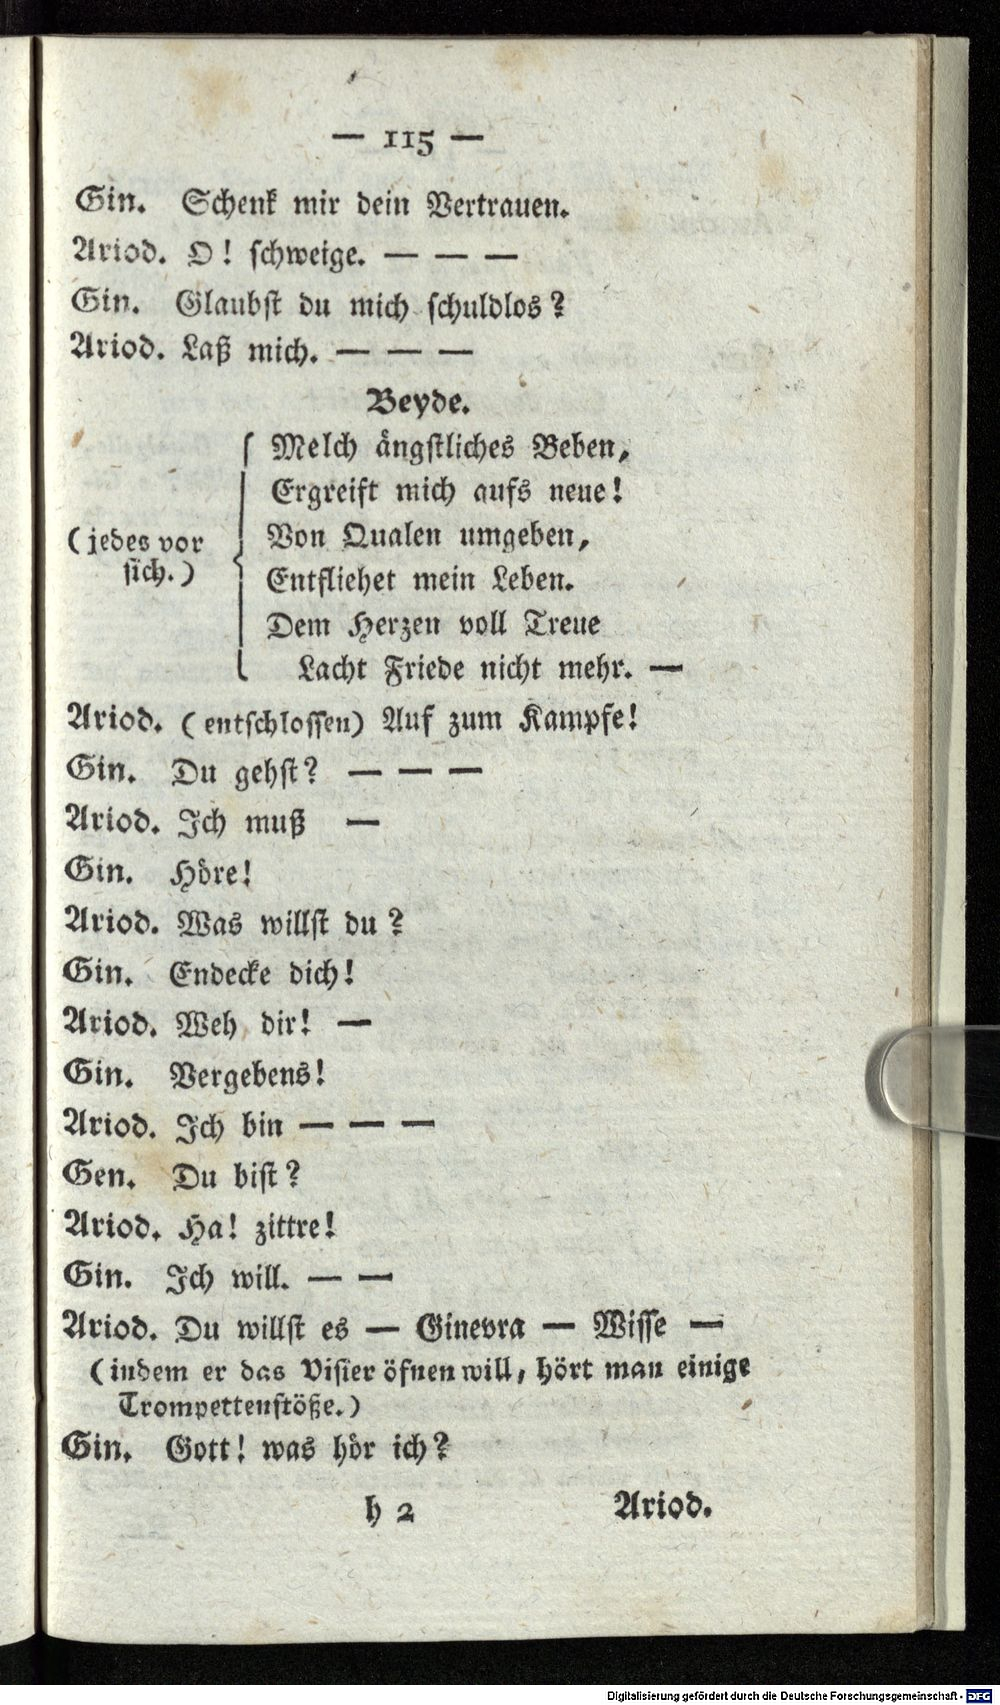 — 115 —
Gin. Schenk mir dein Vertrauen.
Ariod. O! schweige. — — —
Gin. Glaubst du mich schuldlos?
Ariod. Laß mich. — — —
Beyde.
(jedes vor sich.)
Melch ängstliches Beben,
Ergreift mich aufs neue!
Von Qualen umgeben,
Entfliehet mein Leben.
Dem Herzen voll Treue
Lacht Friede nicht mehr. —
Ariod. (entschlossen) Auf zum Kampfe!
Gin. Du gehst? — — —
Ariod. Ich muß —
Gin. Höre!
Ariod. Was willst du?
Gin. Endecke dich!
Ariod. Weh dir! —
Gin. Vergebens!
Ariod. Ich bin — — —
Gen. Du bist?
Ariod. Ha! zittre!
Gin. Ich will. — —
Ariod. Du willst es — Ginevra — Wisse —
(indem er das Visier öfnen will, hört man einige
Trompettenstöße.)
Gin. Gott! was hör ich?
h 2 Ariod.
Digitalisierung gefördert durch die Deutsche Forschungsgemeinschaft - DFG